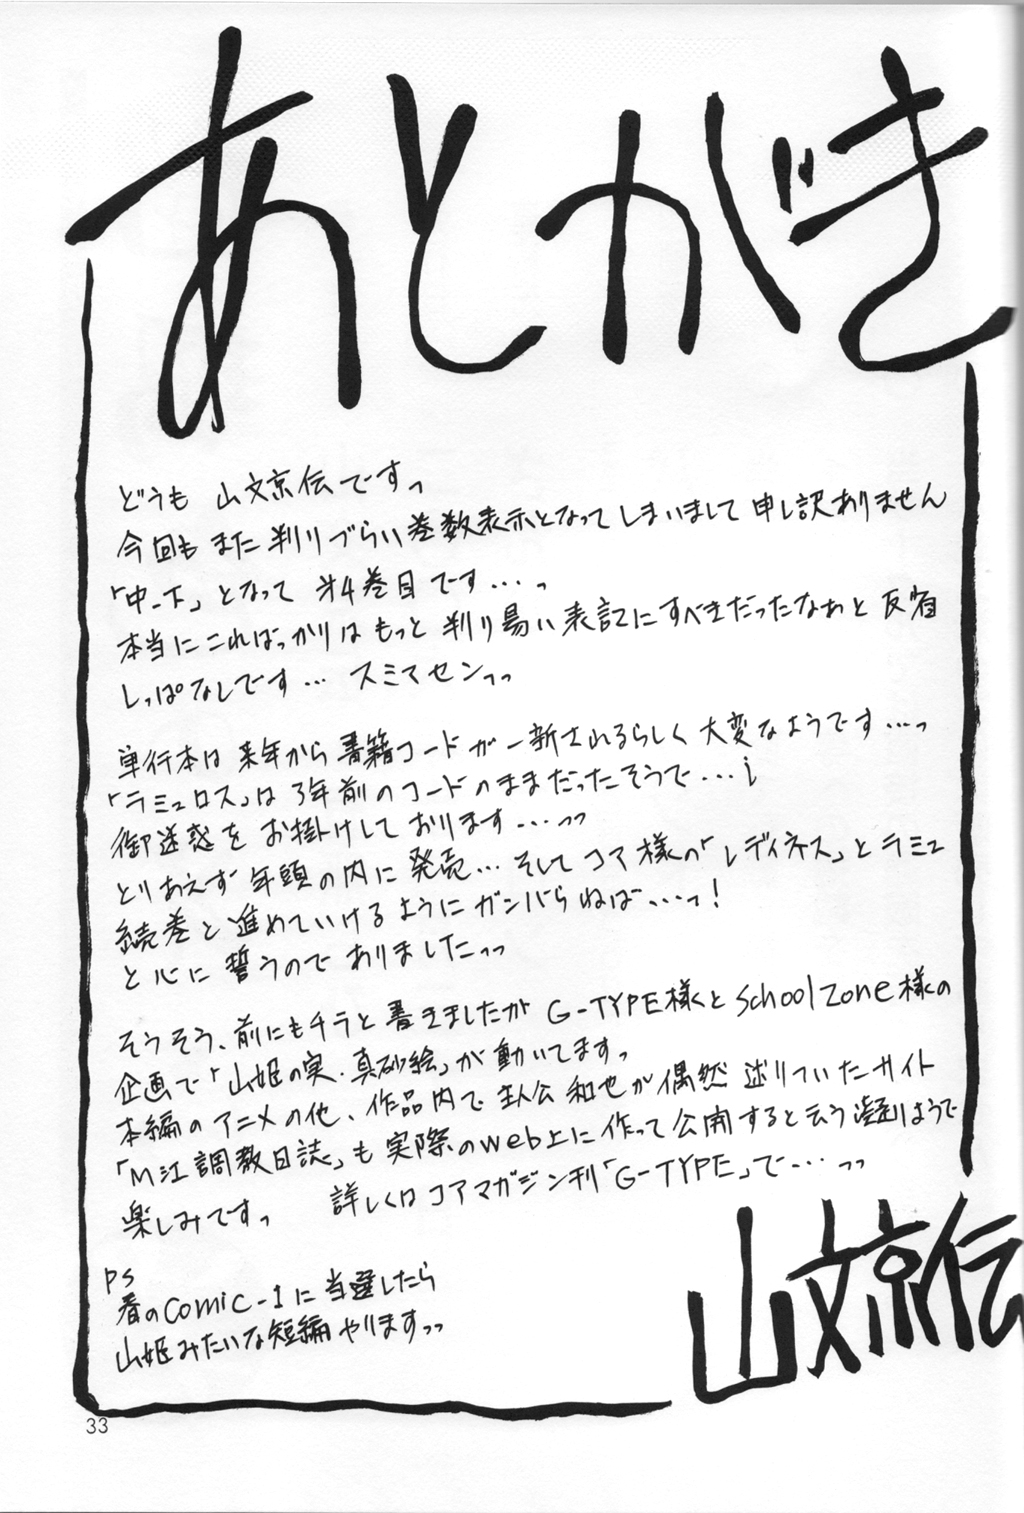 あとがき
どうも 山文京伝ですっ
今回も また 判りづらい巻数表示となって しまいまして 申し訳ありません
「中-下」となって 第4巻目です…っ
本当にこればっかりは もっと 判り易い表記にすべきだったなぁと 反省
しっぱなしです… スミマセンっっ
単行本は 来年から 書籍コードが一新されるらしく 大変なようです…っ
「ラミュロス」は 3年前のコードのままだったそうで…i
御迷惑を お掛けしております…っっ
とりあえず 年頭の内に発売… そして コア様の「レディネス」とラミュ
続巻と進めていけるように ガンバらねば…っ!
と心に 誓うのでありましたっっ
そうそう、前にもチラと 書きましたが G-TYPE様とschoolzone様の
企画で「山姫の実・真砂絵」が動いてますっ
本編のアニメの他、作品内で 主人公 和也が偶然 辿りついたサイト
「M江調教日誌」も 実際のweb上に 作って 公開すると云う凝りようで
楽しみですっ 詳しくは コアマガジン刊「G-TYPE」で…っっ
PS
春のcomic-1に当選したら
山姫みたいな短編やりますっっ
山文京伝
33